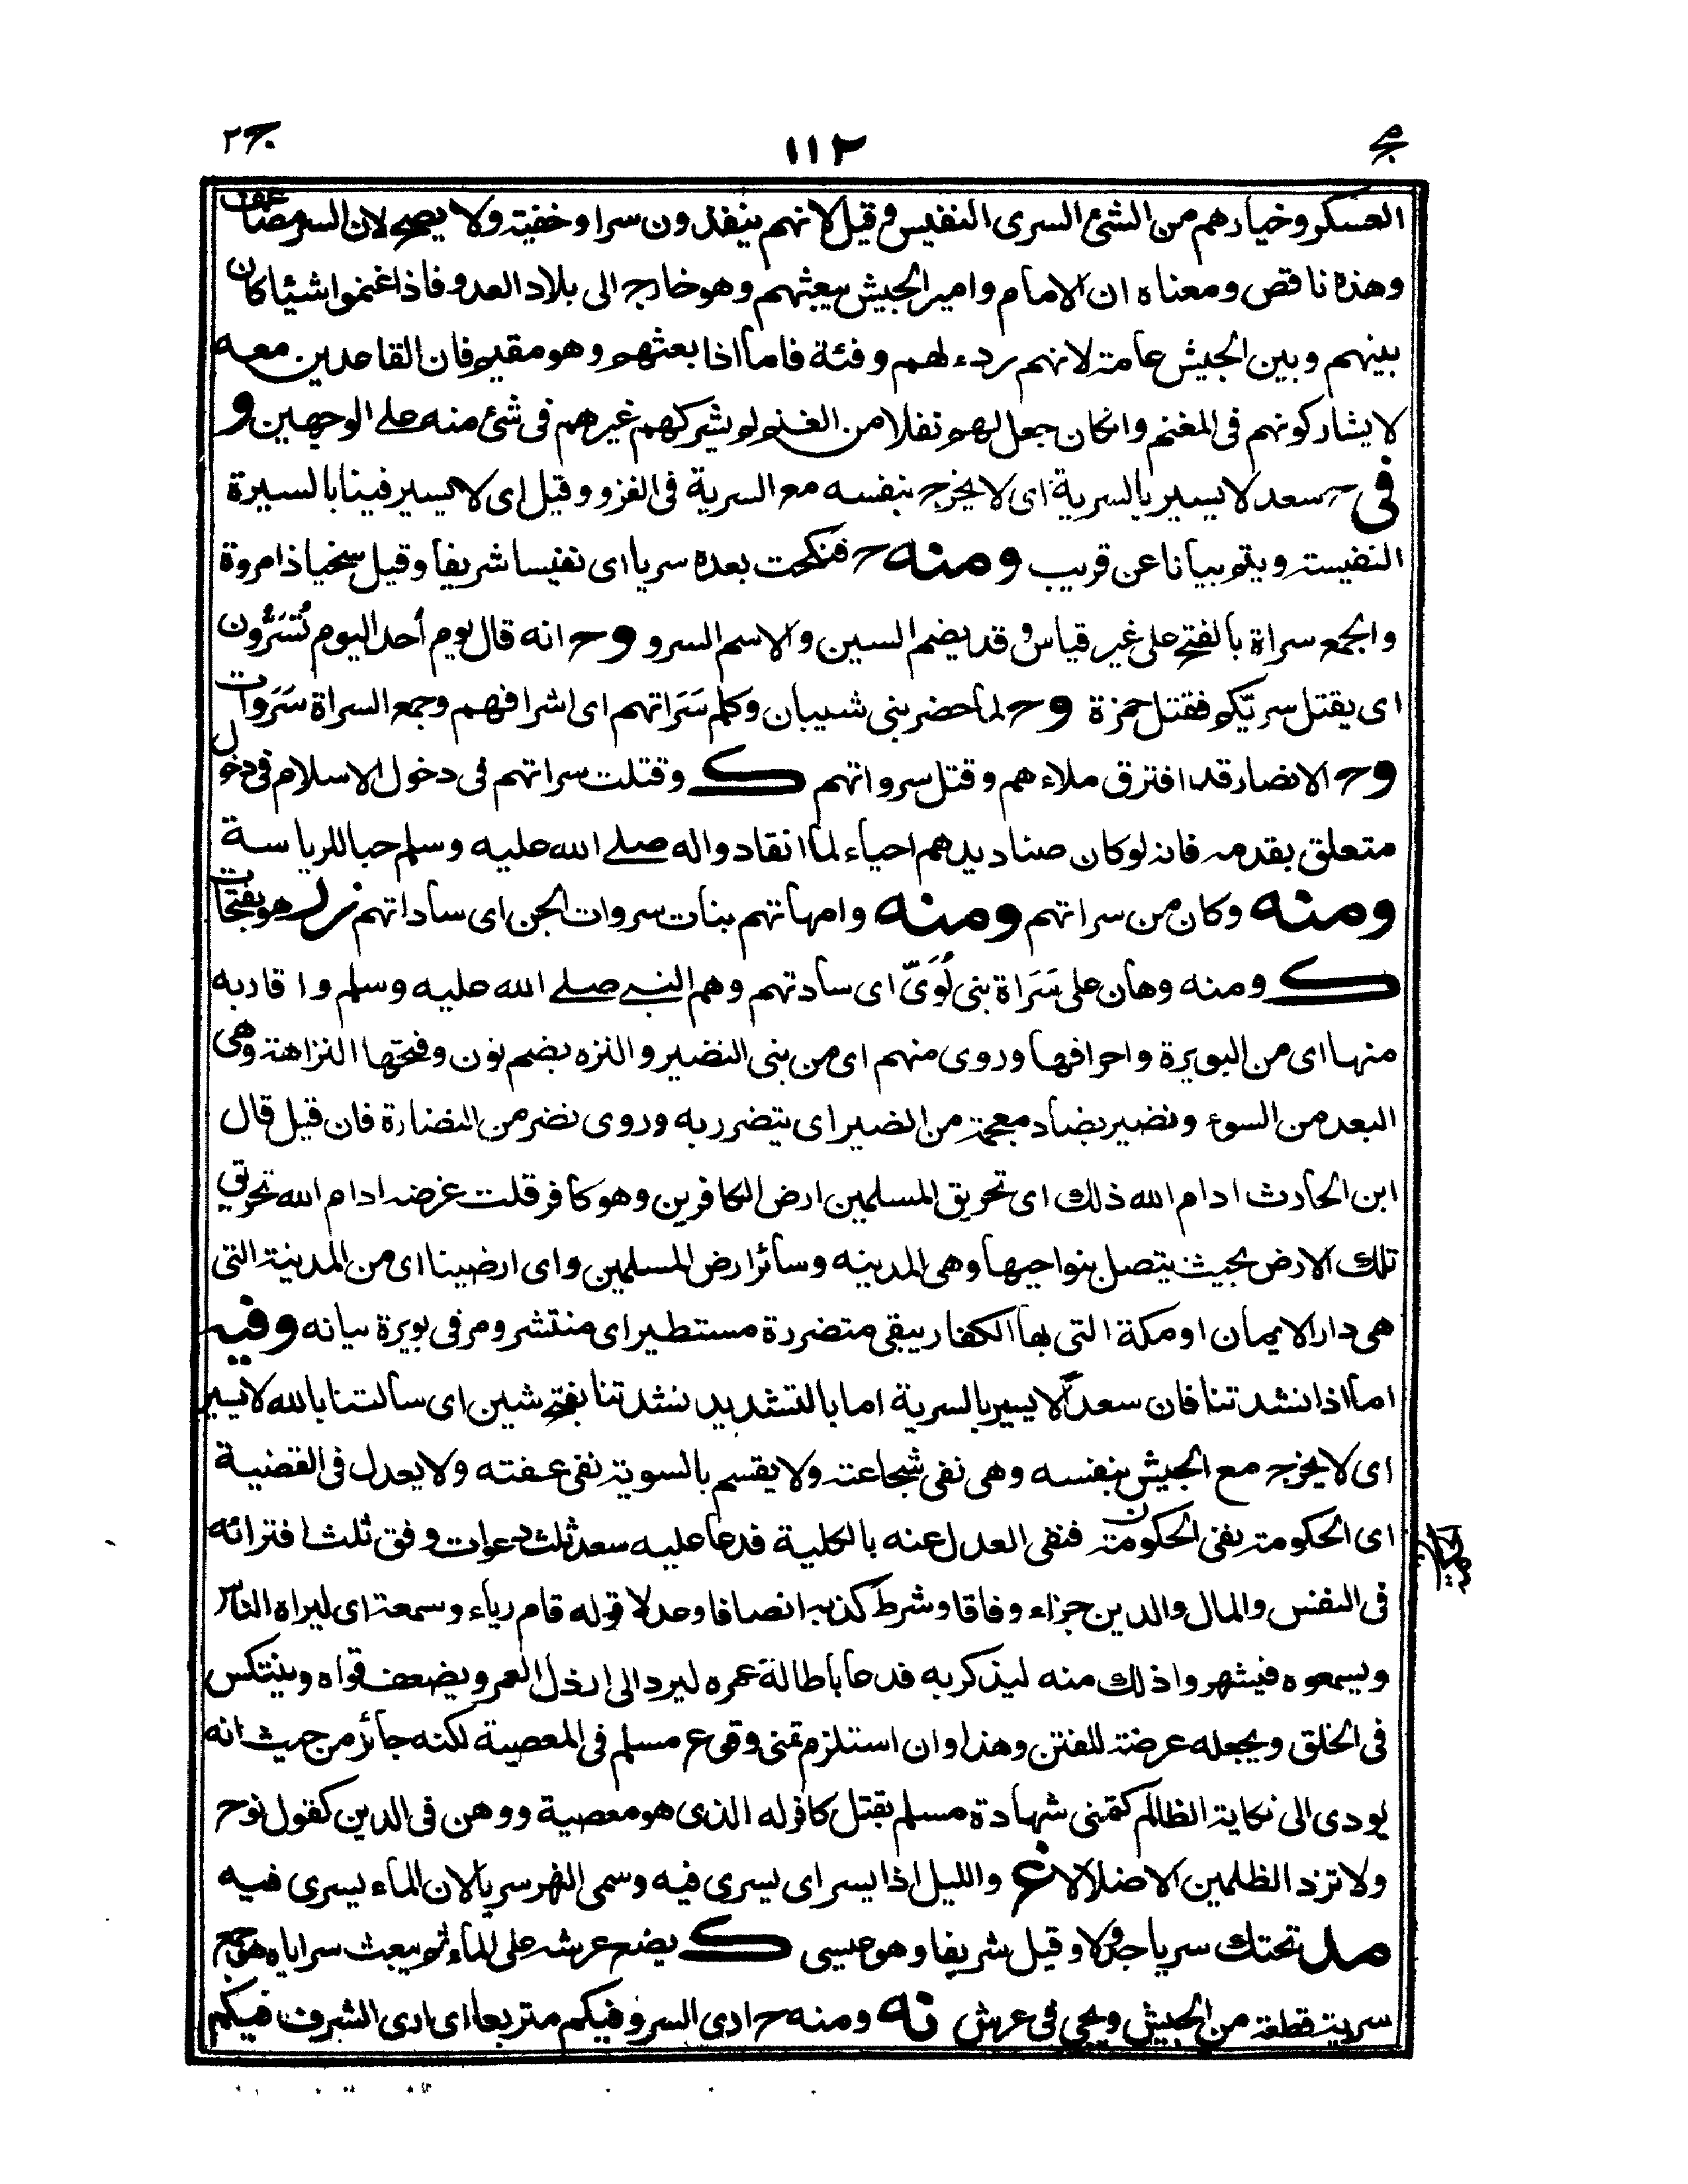 مج ١١٢ ج٢
العسكر وخيارهم من الشئ السرى النفيس وقيل لانهم ينفذون سرا وخفية ولا يصح لان السر مضاعف
وهذه ناقص ومعناه ان الامام وامير الجيش يبعثهم وهو خارج الى بلاد العدو فاذا غنموا شيئا كان
بينهم وبين الجيش عامة لانهم ردء لهم وفئة فاما اذا بعثهم وهو مقيم فان القاعدين معه
لا يشاركونهم فى المغنم وانكان جعل لهم نفلا من الغنم لم يشركهم غيرهم فى شئ منه على الوجهين و
فى ح سعد لا يسير بالسرية اى لا يخرج بنفسه مع السرية فى الغزو وقيل اى لا يسير فينا بالسيرة
النفيسة ويتم بيانا عن قريب ومنه ح فنكحت بعده سريا اى نفيسا شريفا وقيل سخيا ذا مروة
والجمع سراة بالفتح على غير قياس وقد يضم السين والاسم السرو وح انه قال يوم أحد اليوم تُسَرُّون
اى يقتل سريكم فقتل حمزة وح لما حضر بنى شيبان وكلم سَرَاتهم اى اشرافهم وجمع السراة سَرَوات
وح الانصار قد افترق ملاءهم وقتل سرواتهم ك وقتلت سراتهم فى دخول الاسلام فى دخول
متعلق بقدمه فانه لو كان صناديدهم احياء لما انقادوا له صلى الله عليه وسلم حبا للرياسة
ومنه وكان من سراتهم ومنه وامهاتهم بنات سروات الجن اى ساداتهم زر هو بفتحات
ك ومنه وهان على سَرَاة بنى لُؤَىّ اى سادتهم وهم النبى صلى الله عليه وسلم واقاربه
منها اى من البويرة واحراقها وروى منهم اى من بنى النضير والنزه بضم نون وفتحها النزاهة وهى
البعد من السوء ونضير بضاد معجمة من الضير اى يتضرر به وروى نضر من النضارة فان قيل قال
ابن الحارث ادام الله ذلك اى تحريق المسلمين ارض الكافرين وهو كافر قلت غرضه ادام الله تحريق
تلك الارض بحيث يتصل بنواحيها وهى المدينه وسائر ارض المسلمين واى ارضينا اى من المدينة التى
هى دار الايمان او مكة التى بها الكفار يبقى متضررة مستطير اى منتشر ومر فى بويرة بيانه وفيه
اما اذا نشدتنا فان سعدًا لا يسير بالسرية اما بالتشديد نشدتنا بفتح شين اى سالتنا بالله لا يسير
اى لا يخرج مع الجيش بنفسه وهى نفى شجاعته ولا يقسم بالسوية نفى عفته ولا يعدل فى القضية
اى الحكومة نفى الحكومة فنفى العدل عنه بالكلية فدعا عليه سعد ثلث دعوات وفق ثلث افترائه
فى النفس والمال والدين جزاء وفاقا وشرط كذبه انصافا وعدلا قوله قام رياء وسمعة اى ليراه الناس
ويسمعوه فيشهروا ذلك منه ليذكر به فدعا باطالة عمره ليرد الى ارذل العمر ويضعف قواه وينتكس
فى الخلق ويجعله عرضة للفتن وهذا وان استلزم تمنى وقوع مسلم فى المعصية لكنه جائز من حيث انه
يودى الى نكاية الظالم كتمنى شهادة مسلم بقتل كافر له الذى هو معصية ووهن فى الدين كقول نوح
ولا تزد الظلمين الا ضلالا غ والليل اذا يسر اى يسرى فيه وسمى النهر سريا لان الماء يسرى فيه
مد تحتك سريا جدولا وقيل شريفا وهو عيسى ك يضع عرشه على الماء ثم يبعث سراياه هو جمع
سرية قطعة من الجيش ويجى فى عرش نه ومنه ح ارى السرو فيكم متربعا اى ارى الشرف فيكم